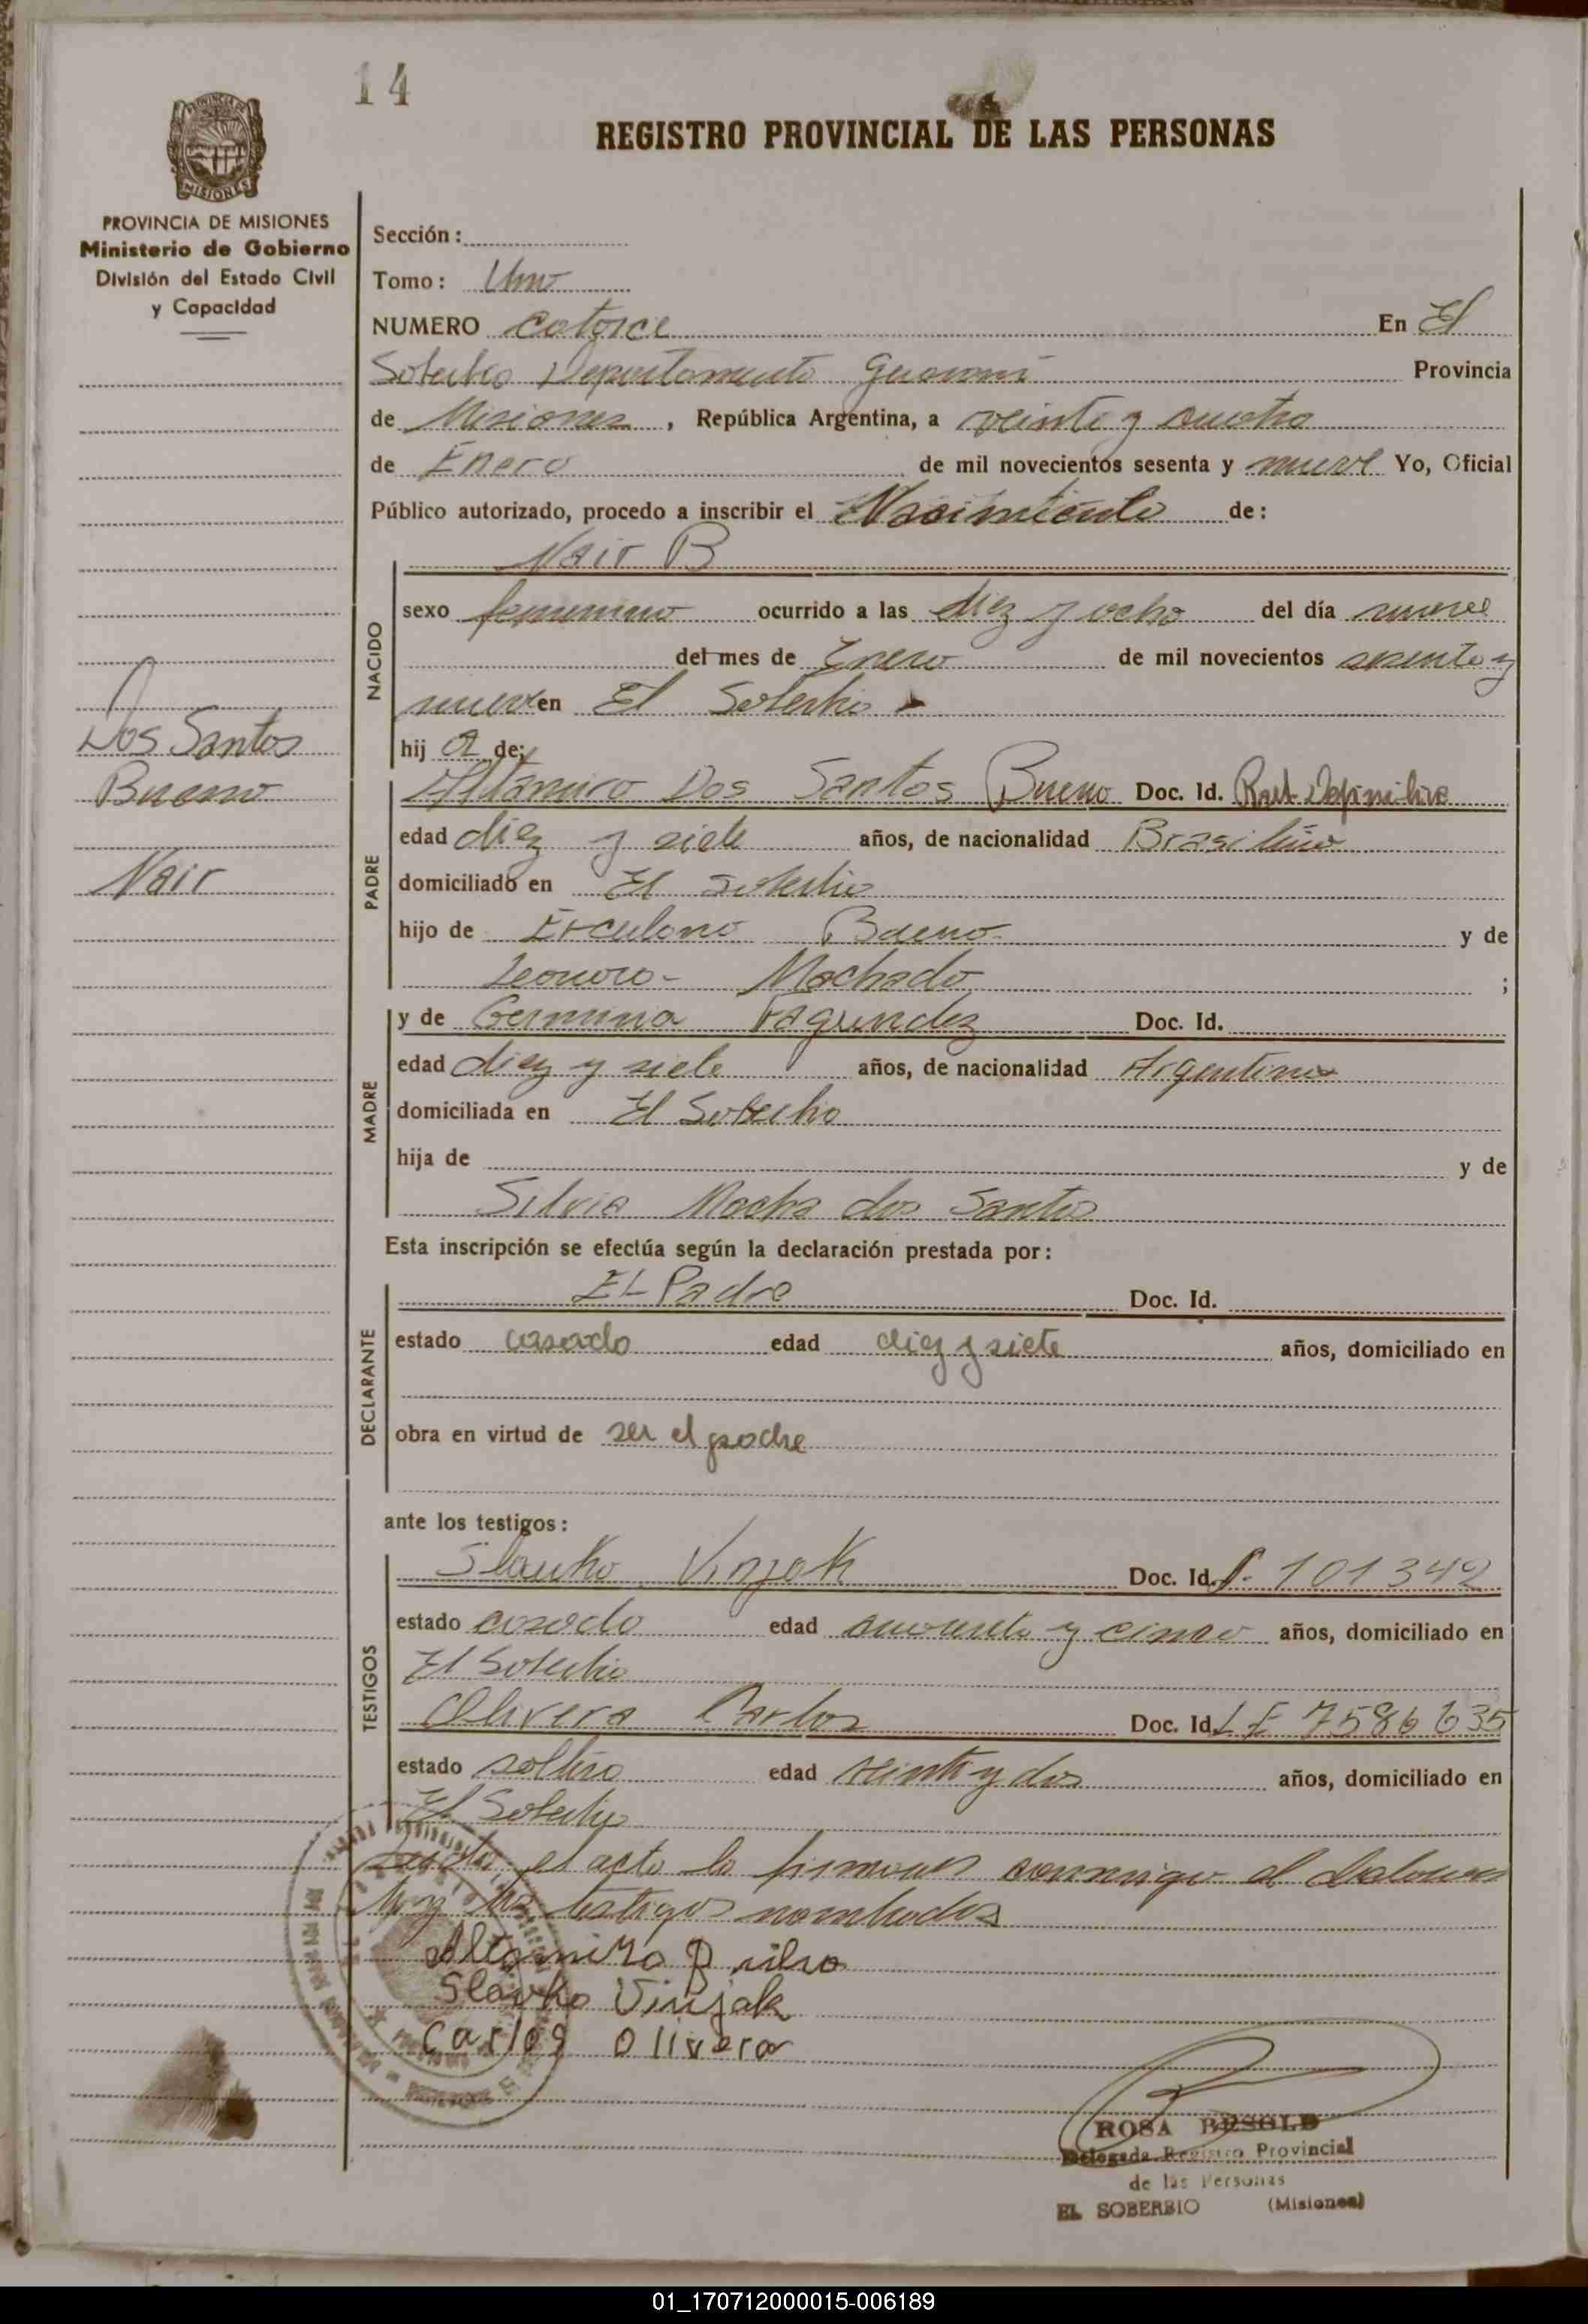 14
REGISTRO PROVINCIAL DE LAS PERSONAS
PROVINCIA DE MISIONES
Ministerio de Gobierno
División del Estado Civil
y Capacidad
Sección:
Tomo: Uno
NUMERO Catorce En El
Soberbio Departamento Guaraní Provincia
de Misiones, República Argentina, a veinte y cuatro
de Enero de mil novecientos sesenta y nueve Yo, Oficial
Público autorizado, procedo a inscribir el Nacimiento de:
Nair B
NACIDO
sexo femenino ocurrido a las diez y ocho del día nueve
del mes de Enero de mil novecientos sesenta y
nueve en El Soberbio
hij a de:
Dos Santos
Bueno
Nair
PADRE
Altamiro Dos Santos Bueno Doc. Id.
edad diez y siete años, de nacionalidad Brasileño
domiciliado en El Soberbio
hijo de Erculano Bueno y de
Leonora - Machado ;
MADRE
y de Germina Fagundez Doc. Id.
edad diez y siete años, de nacionalidad Argentina
domiciliada en El Soberbio
hija de y de
Silvia Rocha dos Santos
Esta inscripción se efectúa según la declaración prestada por:
DECLARANTE
El Padre Doc. Id.
estado casado edad diez y siete años, domiciliado en
obra en virtud de ser el padre
ante los testigos:
TESTIGOS
Slauko Vinjak Doc. Id. 101342
estado casado edad cuarenta y cinco años, domiciliado en
El Soberbio
Olivera Carlos Doc. Id. LE 7586635
estado soltero edad veinte y dos años, domiciliado en
El Soberbio
el acta la firman conmigo el
testigos nombrados
Altamiro
Slavko Vinjak
Carlos Olivera
ROSA BESOLD
Delegada Registro Provincial
de las Personas
EL SOBERBIO (Misiones)
01_170712000015-006189